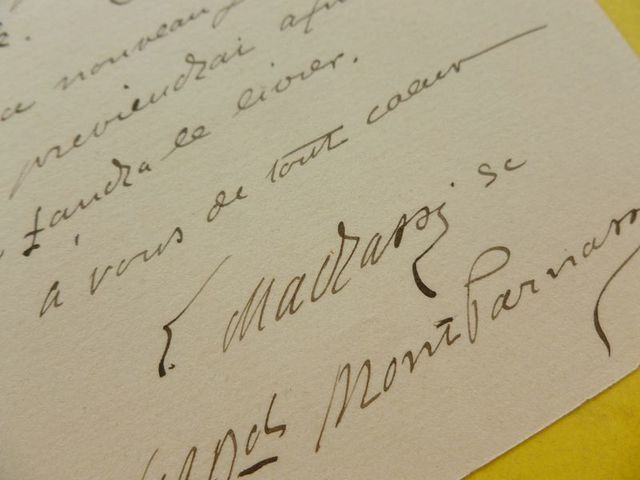 a nouveau
previendrai afin
faudra le livrer.
à vous de tout coeur
L Madrassi sc
Bds MontParnass